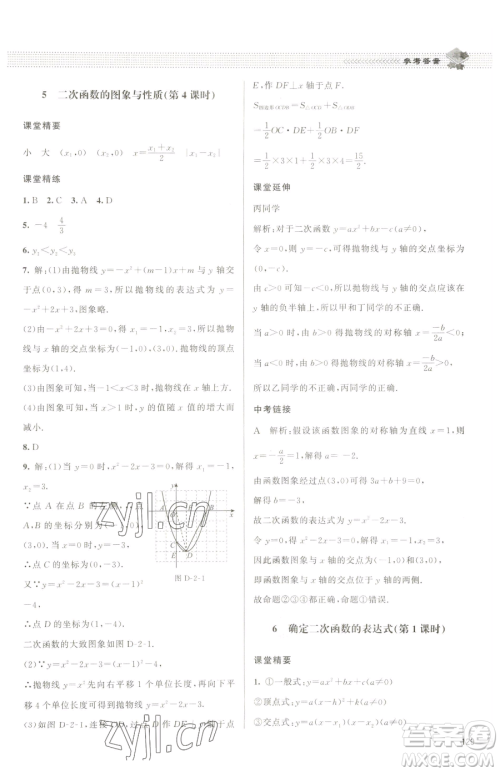 参考答案
5 二次函数的图象与性质(第4课时)
课堂精要
小 大 (x₁,0) (x₂,0) x=(x₁+x₂)/2 |x₁-x₂|
课堂精练
1. B 2. C 3. A 4. D
5. -4 4/3
6. y₃<y₁<y₂
7. 解:(1)由抛物线y=-x²+(m-1)x+m与y轴
交于点(0,3),得m=3,所以抛物线的表达式为y
=-x²+2x+3. 图象略.
(2)由图象可知,抛物线与x轴的交点为(-1,0),
(3,0),与y轴的交点坐标为(0,3). 抛物线的顶点
坐标为(1,4).
(3)由图象可知,当-1<x<3时,y>0.
(4)由图象可知,当x>1时,y的值随x值的增大而
减小.
8. D
9. 解:(1)当y=0时,x²-2x-3=0. 解得x₁=-1,
x₂=3.
∵点A在点B的左侧,
∴点A,B的坐标分别为(-1,0),
(3,0). 当x=0时,y=-3,
∴点C的坐标为(0,-3).
又∵y=x²-2x-3=(x-1)²-4,
图 D-2-1
∴点D的坐标为
二次函数的大致图象如图D-2-1.
(2)∵y=x²-2x-3=(x-1)²-4,
∴抛物线y=x²向右平移1个单位长度,再向下平
移4个单位长度可得到抛物线y=x²-2x-3.
E,作DF⊥x轴于点F.
=1/2 OC·DE+1/2 OB·DF
=1/2×3×1+1/2×3×4=15/2.
课堂延伸
丙同学
解析:对于二次函数y=ax²+bx-c(a≠0),
令x=0,得y=-c,所以抛物线与y轴的交点坐标为
(0,-c).
当c>0时,-c<0,所以抛物线与y轴的交点应该在
y轴的负半轴上,所以甲和丁同学不正确.
当a>0,b<0时,抛物线的对称轴x=-b/2a>0,
当a<0,b>0时,抛物线的对称轴x=-b/2a>0,
所以乙同学不正确,丙同学正确.
中考链接
A 解析:假设该函数图象的对称轴为直线x=1,
则x=-a/2=1,解得a=-2.
由函数图象经过点(3,0),得3a+b+9=0.
解得b=-3.
故二次函数的表达式为y=x²-2x-3.
令y=0,得x²-2x-3=0,解得x₁=3,x₂=-1.
因此函数图象与x轴的交点为(3,0)和(-1,0).
故命题②③④都正确,命题①错误.
6 确定二次函数的表达式(第1课时)
课堂精要
1. ①一般式:y=ax²+bx+c(a≠0)
②顶点式:y=a(x-h)²+k(a≠0)
zyjl.cn
zyjl.cn